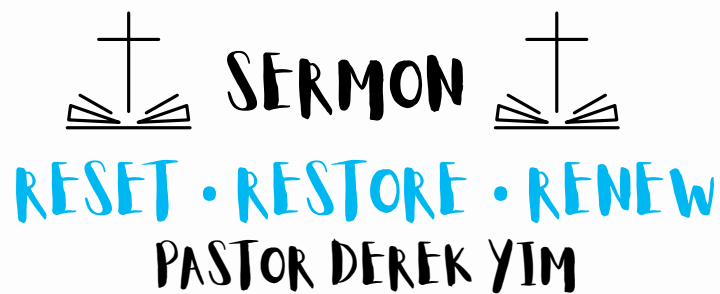 SERMON
RESET • RESTORE • RENEW
PASTOR DEREK YIM